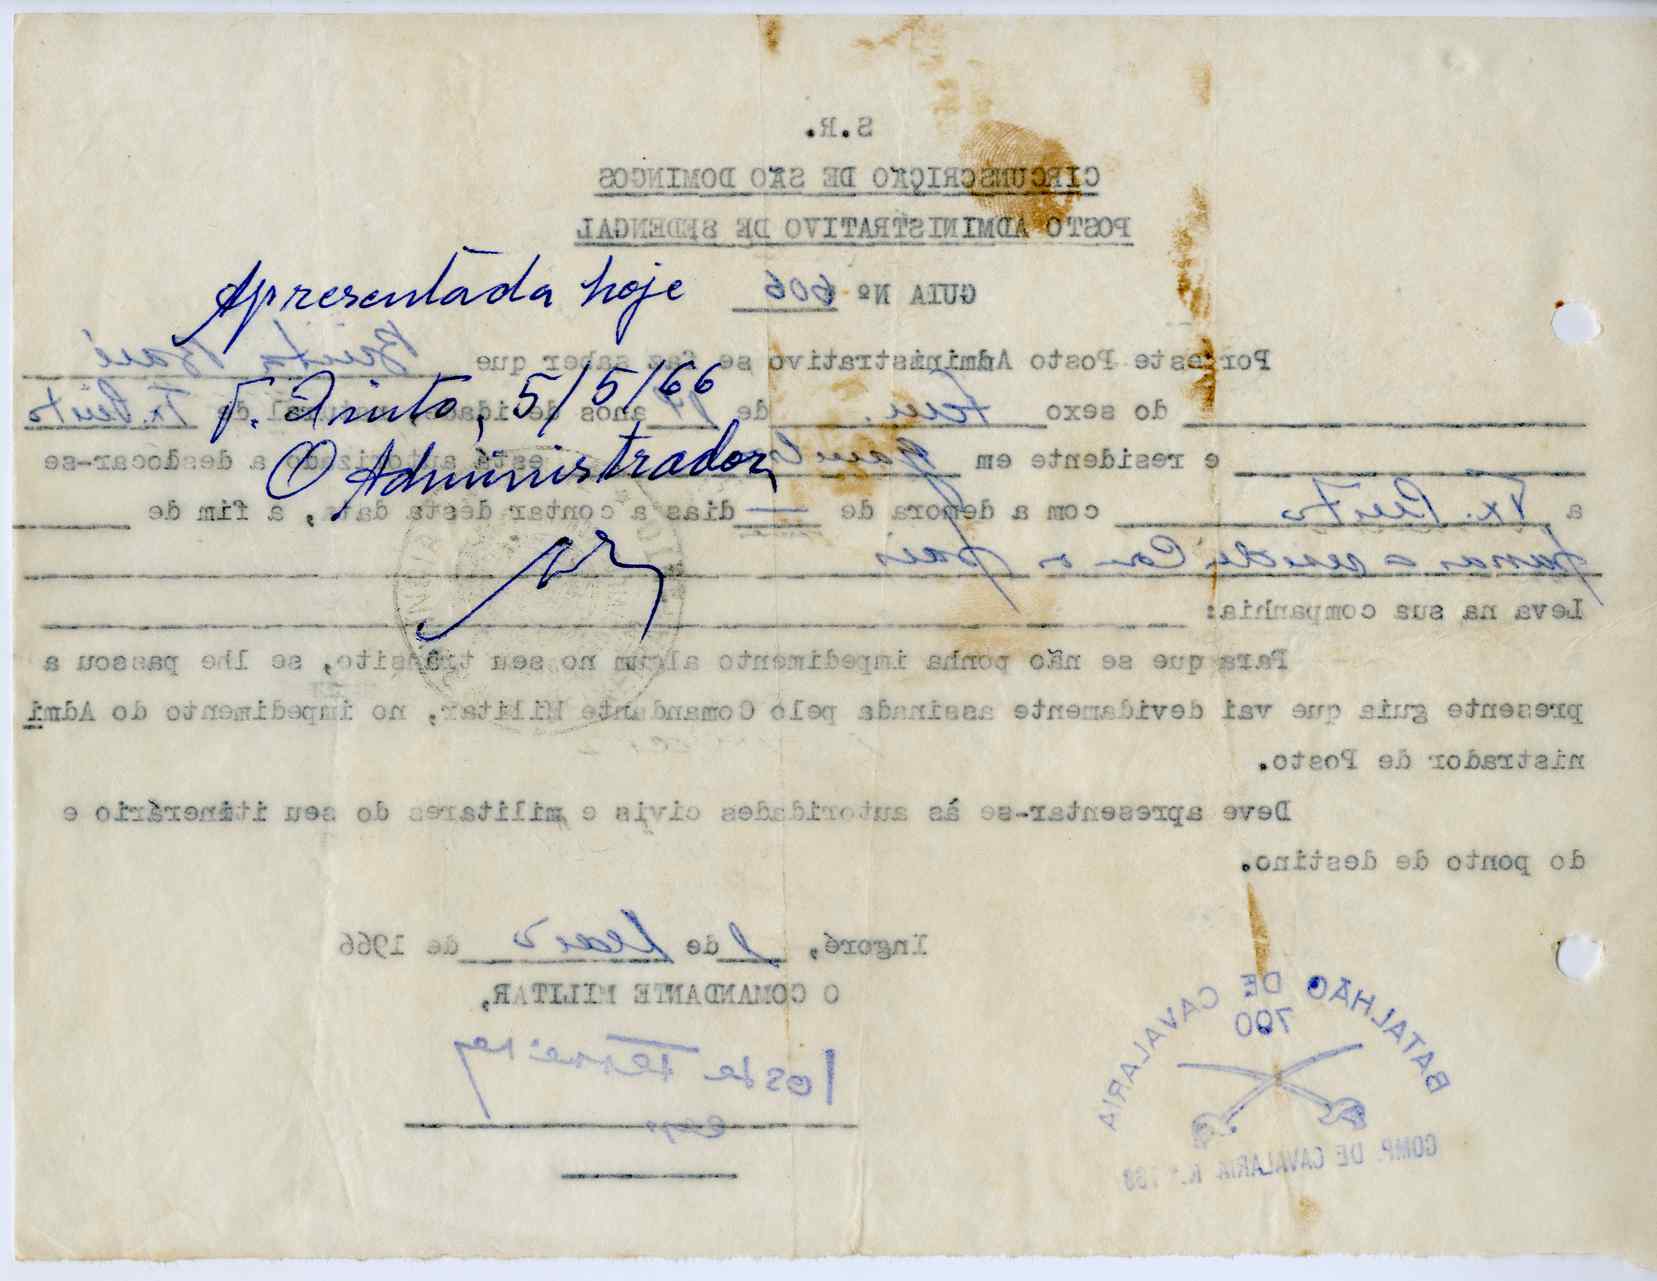 S.R.
CIRCUNSCRIÇÃO DE SÃO DOMINGOS
POSTO ADMINISTRATIVO DE SEDENGAL
GUIA Nº 606
Apresentada hoje
Por este Posto Administrativo se faz saber que Benta
T. Pinto, 5/5/66
do sexo Fem. de anos de idade, natural de Tx. Pinto
O Administrador,
e residente em está autorizado a deslocar-se
a Tx. Pinto com a demora de dias a contar desta data, a fim de
passar a residir com o pais
Leva na sua companhia:
Para que se não ponha impedimento algum no seu trânsito, se lhe passou a
presente guia que vai devidamente assinada pelo Comandante Militar, no impedimento do Admi
nistrador de Posto.
Deve apresentar-se às autoridades civis e militares do seu itinerário e
do ponto de destino.
Ingoré, 1 de Maio de 1966
O COMANDANTE MILITAR,
cap
BATALHÃO DE CAVALARIA
790
COMP. DE CAVALARIA